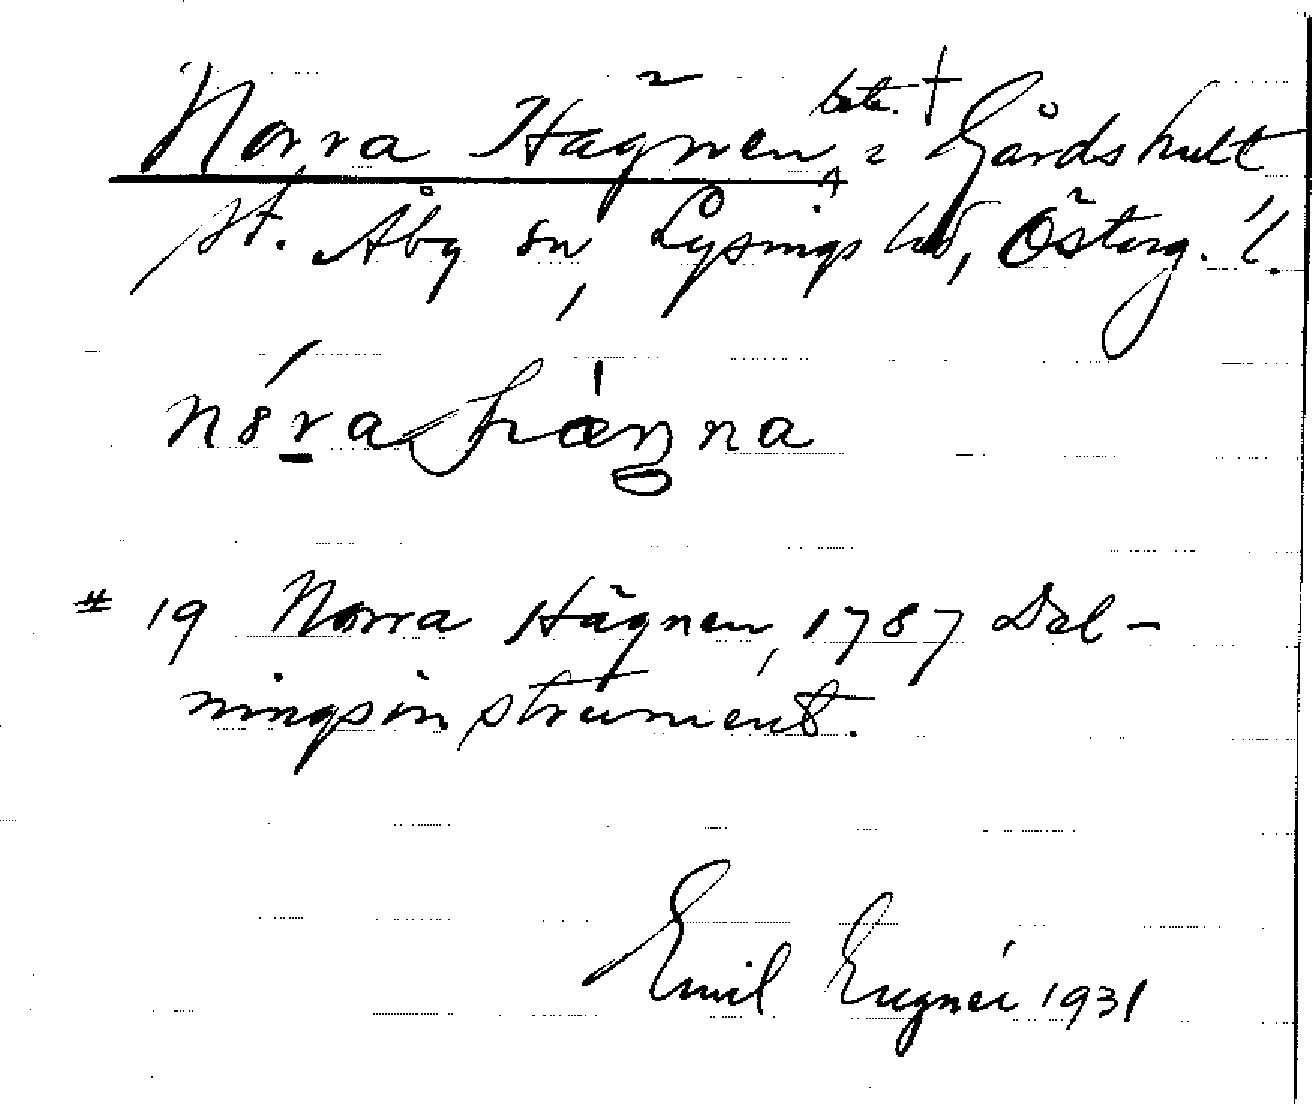 Norra Hägnen, bete. † i Gårdshult
St. Åby sn, Lysings hd, Österg. l.
nó̱ra hæŋna
# 19 Norra Hägnen, 1787 Del-
ningsinstrument.
Emil Eugnér 1931